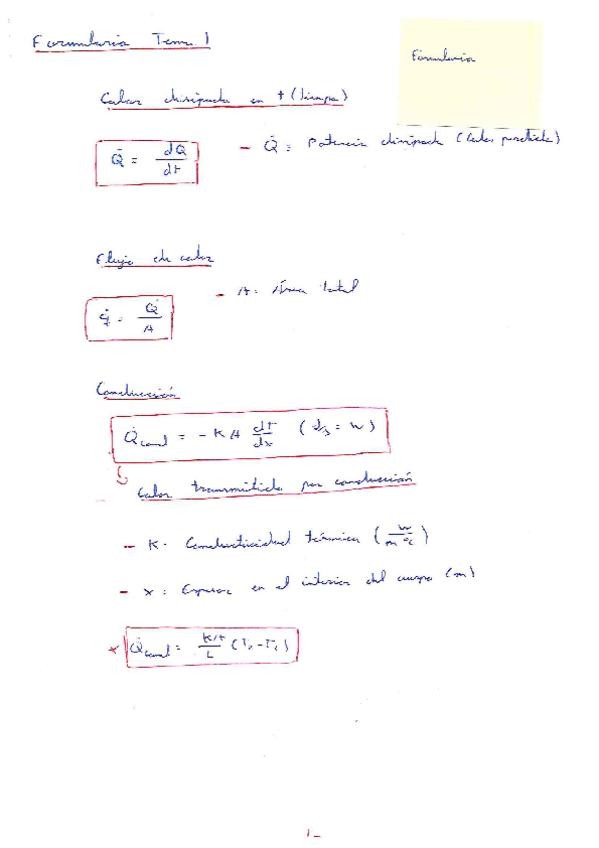 Formulario Tema 1
Formulario
Calor disipado en t (tiempo)
Q̇ = dQ/dt
- Q̇ = Potencia disipada (
Flujo de calor
q̇ = Q̇/A
- A = Área total
Conducción
Q̇cond = -KA dt/dx (J/s = W)
Calor transmitido por conducción
- K = Conductividad térmica (W/m °C)
- x = Espesor en el interior del cuerpo (m)
* Q̇cond = KA/L
1-